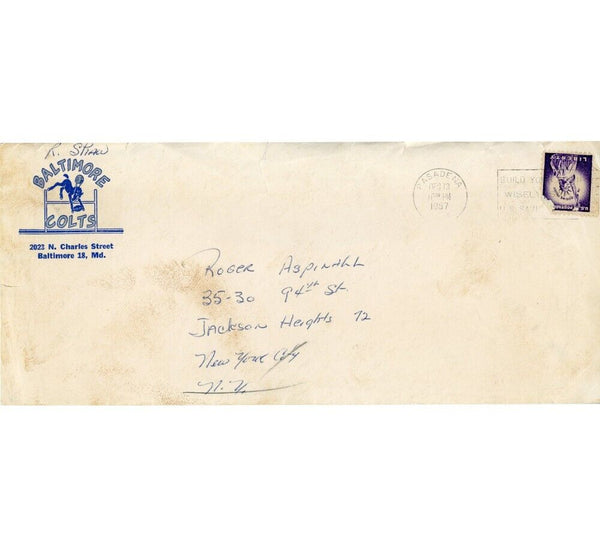 R. Shaw
BALTIMORE
COLTS
2023 N. Charles Street
Baltimore 18, Md.
PASADENA
1957
PM
BUILD YO
WISEL
LIBERTY
U.S. POSTAGE
ROGER ASPINALL
35-30 94th St.
JACKSON Heights 72
New York City
N.Y.